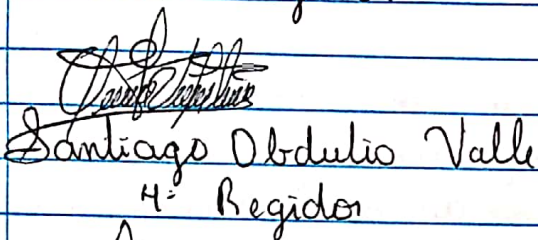 Santiago Obdulio Valle
4º Regidor